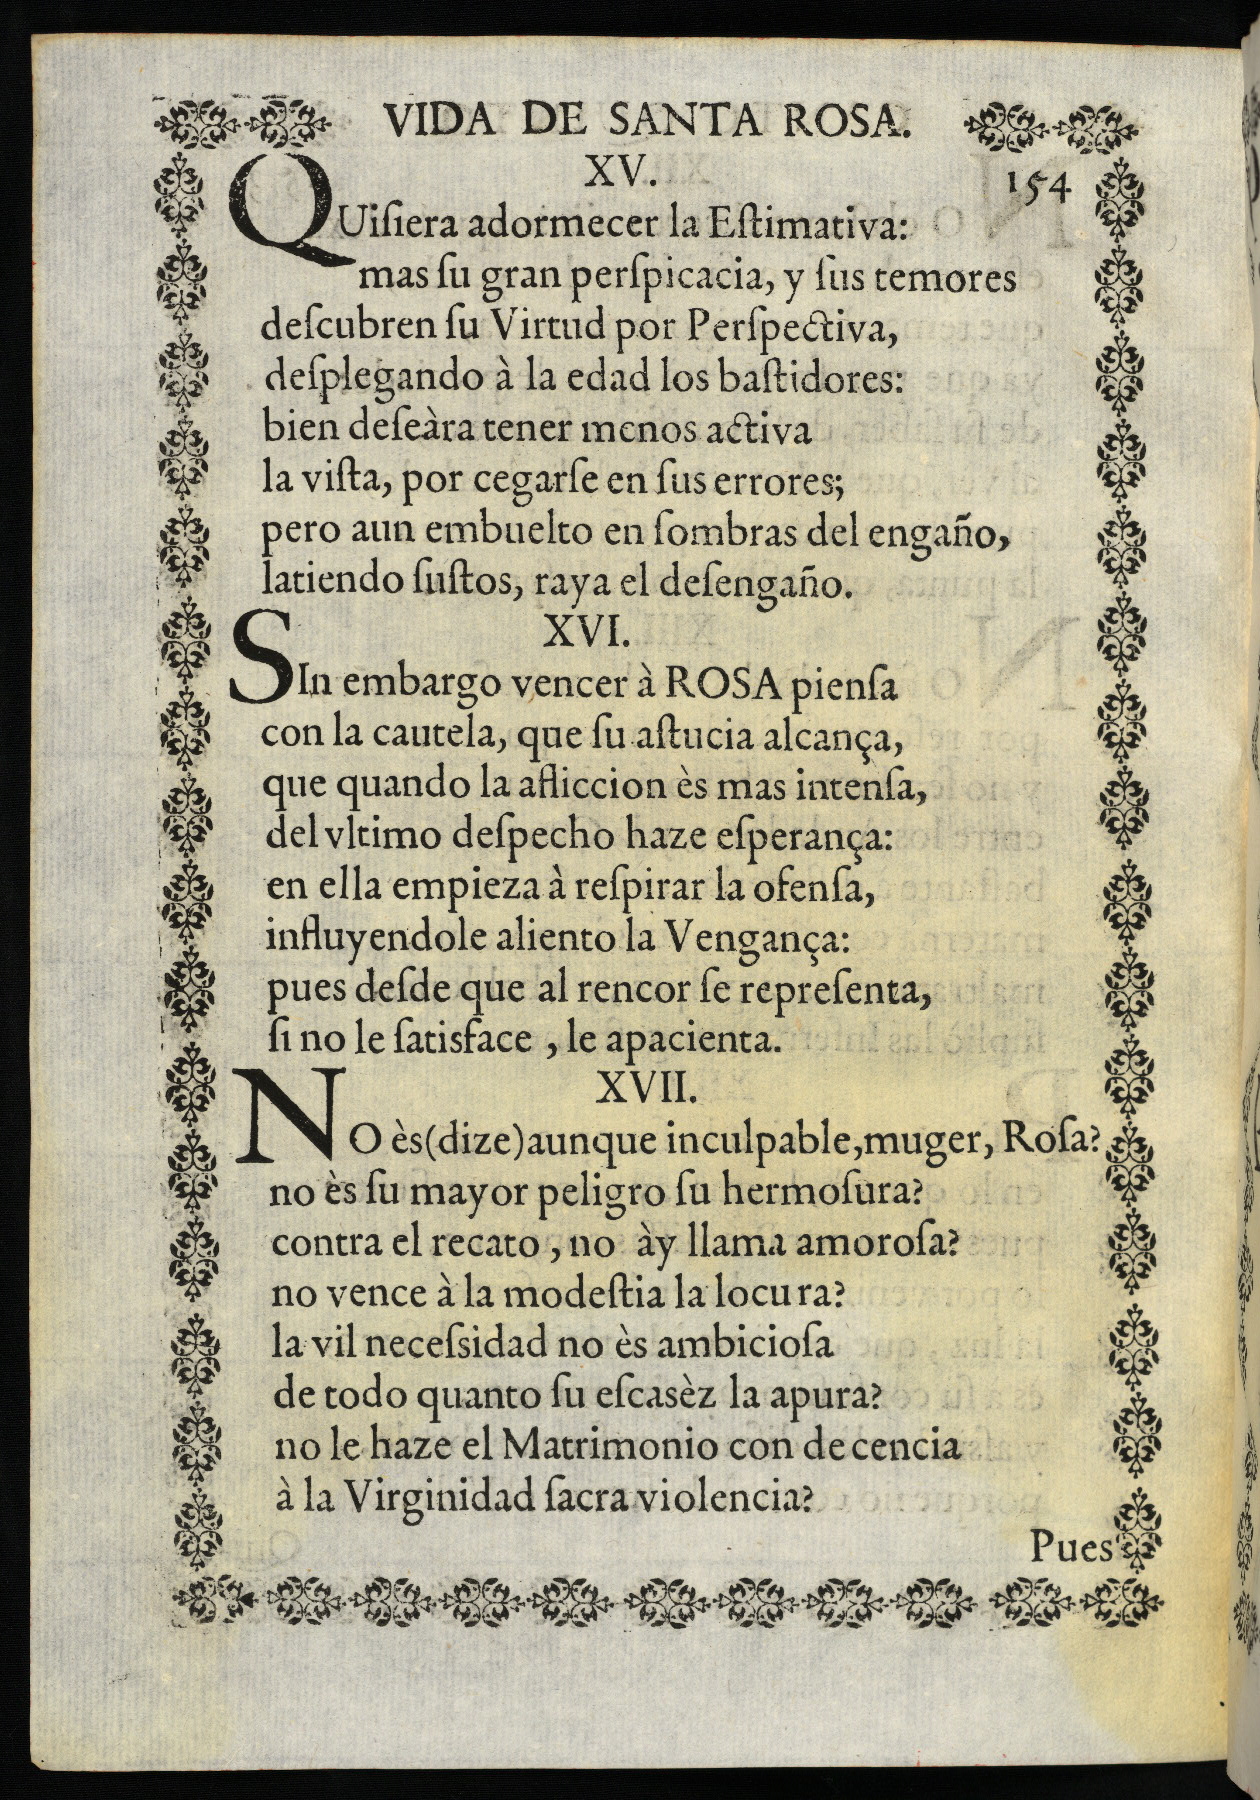 VIDA DE SANTA ROSA.
XV.
154
QUiſiera adormecer la Eſtimativa:
mas ſu gran perſpicacia, y ſus temores
deſcubren ſu Virtud por Perſpectiva,
deſplegando à la edad los baſtidores:
bien deſeàra tener menos activa
la viſta, por cegarſe en ſus errores;
pero aun embuelto en ſombras del engaño,
latiendo ſuſtos, raya el deſengaño.
XVI.
SIn embargo vencer à ROSA pienſa
con la cautela, que ſu aſtucia alcança,
que quando la afliccion ès mas intenſa,
del vltimo deſpecho haze eſperança:
en ella empieza à reſpirar la ofenſa,
influyendole aliento la Vengança:
pues deſde que al rencor ſe repreſenta,
ſi no le ſatisface , le apacienta.
XVII.
NO ès(dize)aunque inculpable,muger, Roſa?
no ès ſu mayor peligro ſu hermoſura?
contra el recato , no ày llama amoroſa?
no vence à la modeſtia la locura?
la vil neceſsidad no ès ambicioſa
de todo quanto ſu eſcasèz la apura?
no le haze el Matrimonio con decencia
à la Virginidad ſacra violencia?
Pues